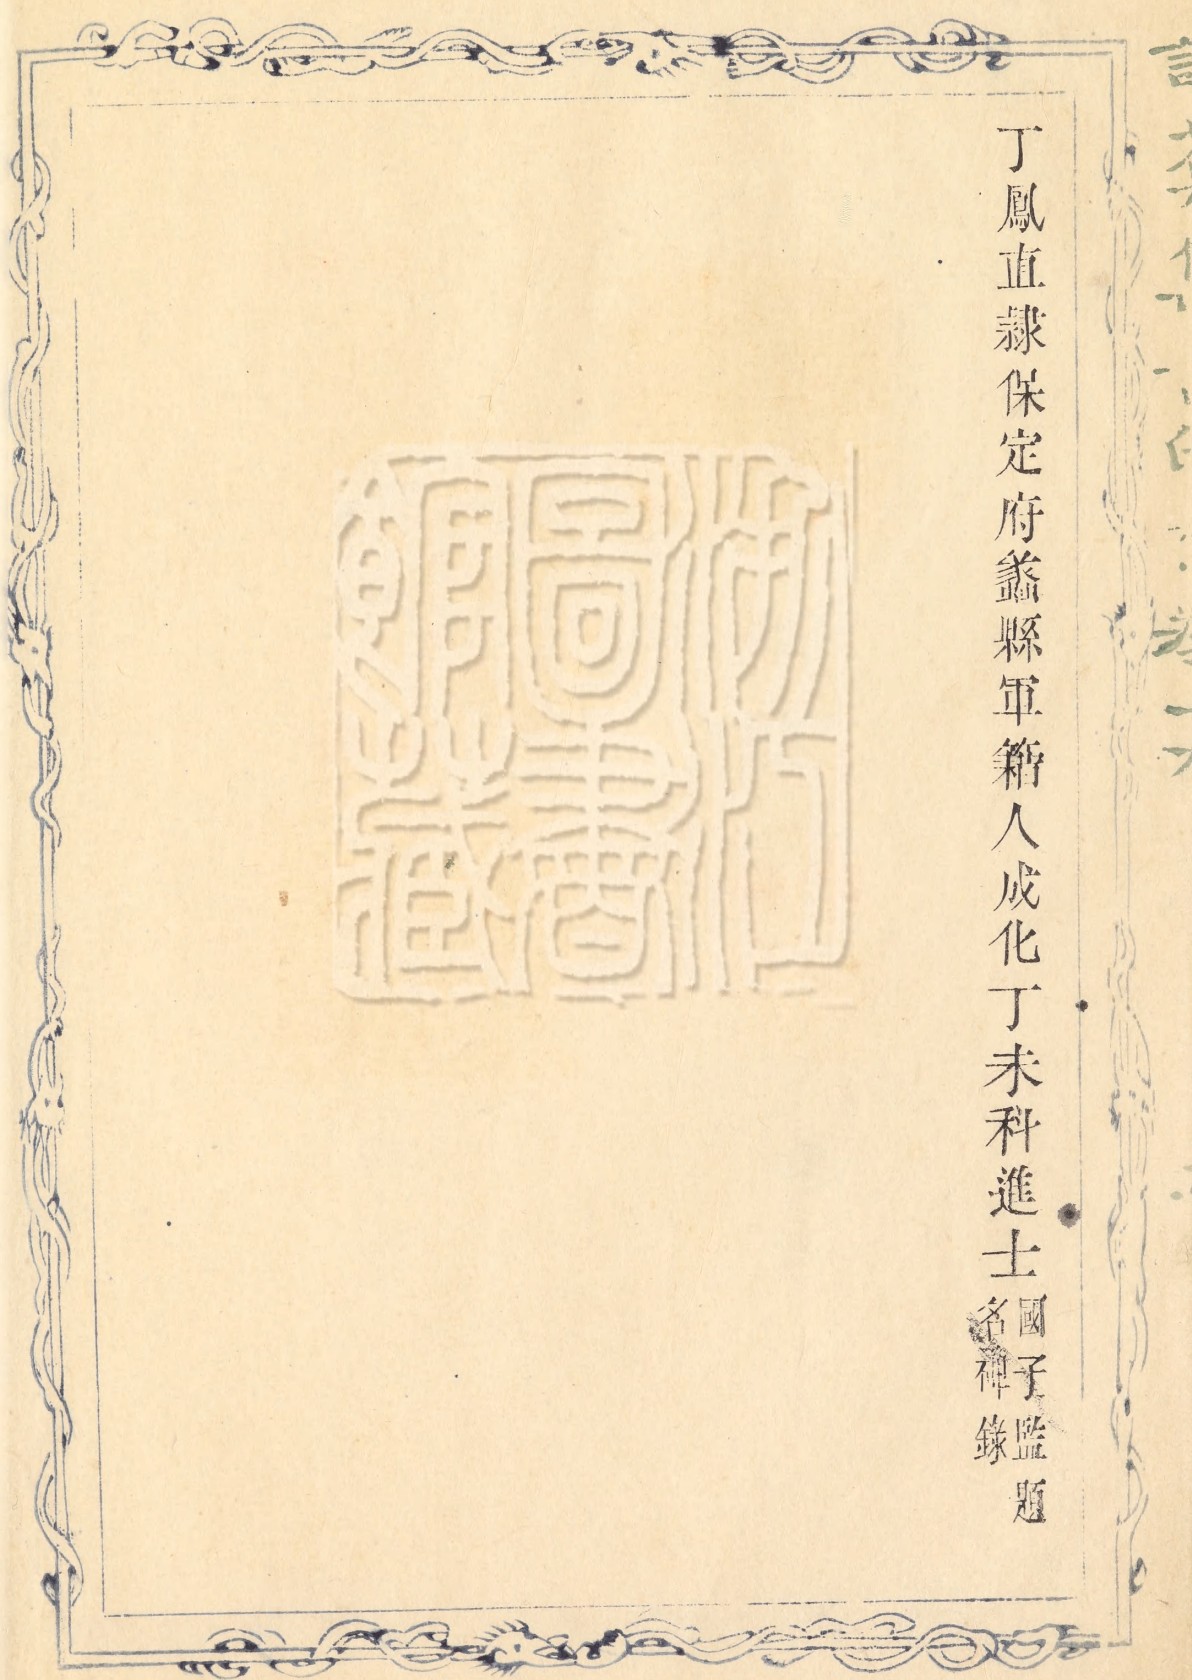 丁鳳直隸保定府蠡縣軍籍人成化丁未科進士
國子監題
名碑錄
浙江
圖書
館藏